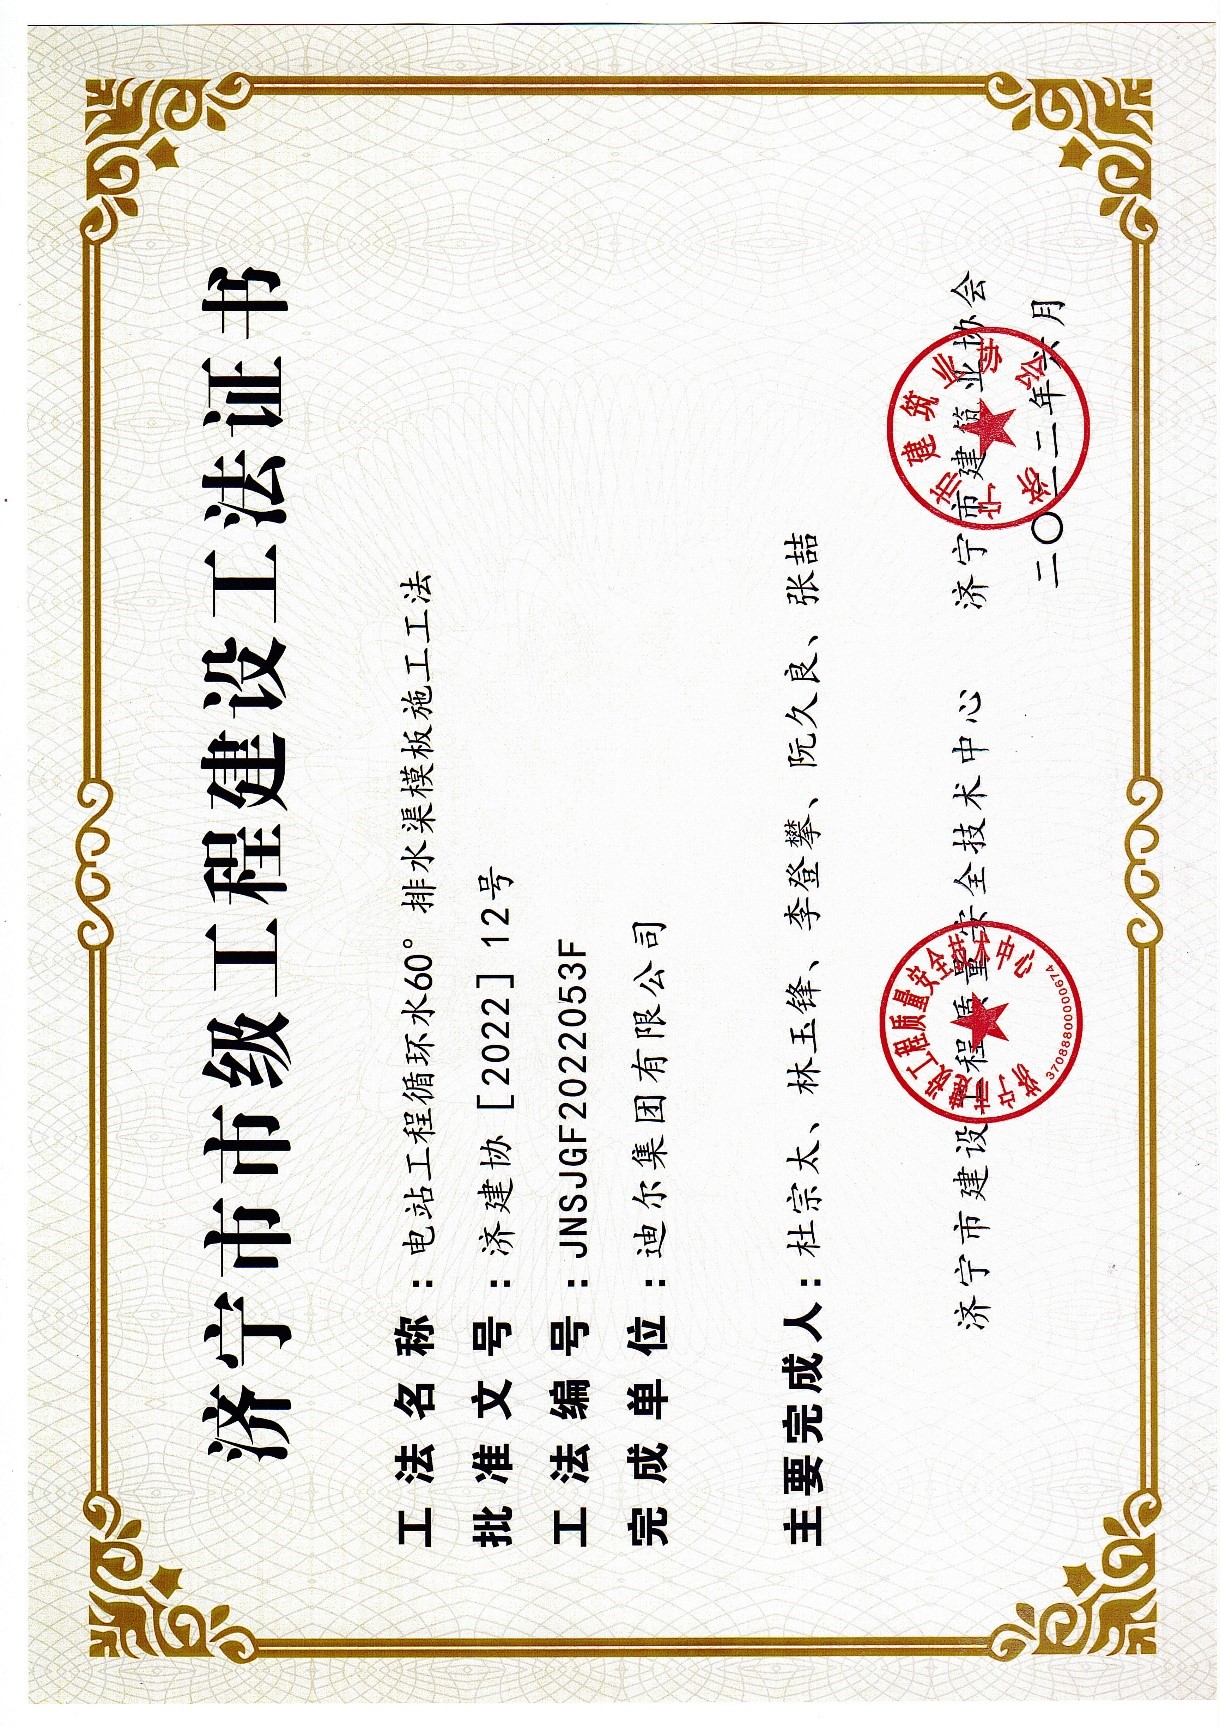 济宁市市级工程建设工法证书
工法名称：电站工程循环水60°排水渠模板施工工法
批准文号：济建协［2022］12号
工法编号：JNSJGF2022053F
完成单位：迪尔集团有限公司
主要完成人：杜宗太、林玉锋、李登攀、阮久良、张喆
济宁市建设工程质量安全技术中心 济宁市建筑业协会
二〇二二年六月
济宁市建设工程质量安全技术中心
3708880000674
济宁市建筑业协会